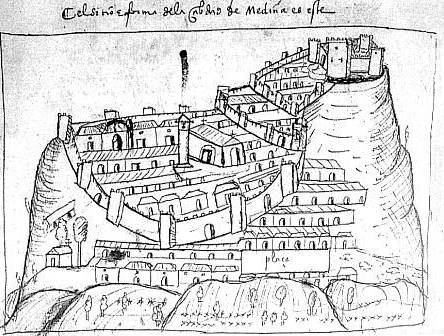 El sitio e forma dela cibdad De Medina es este
plaça